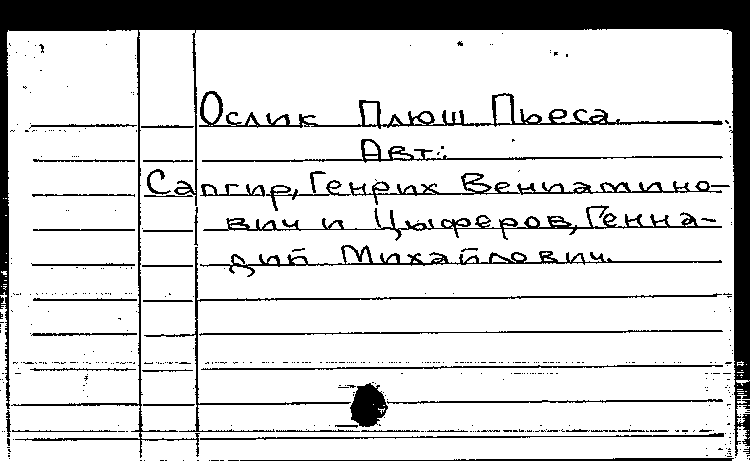 Ослик Плюш Пьеса.
Авт.:
Сапгир, Генрих Вениамино-
вич и Цыферов, Генна-
дий Михайлович.